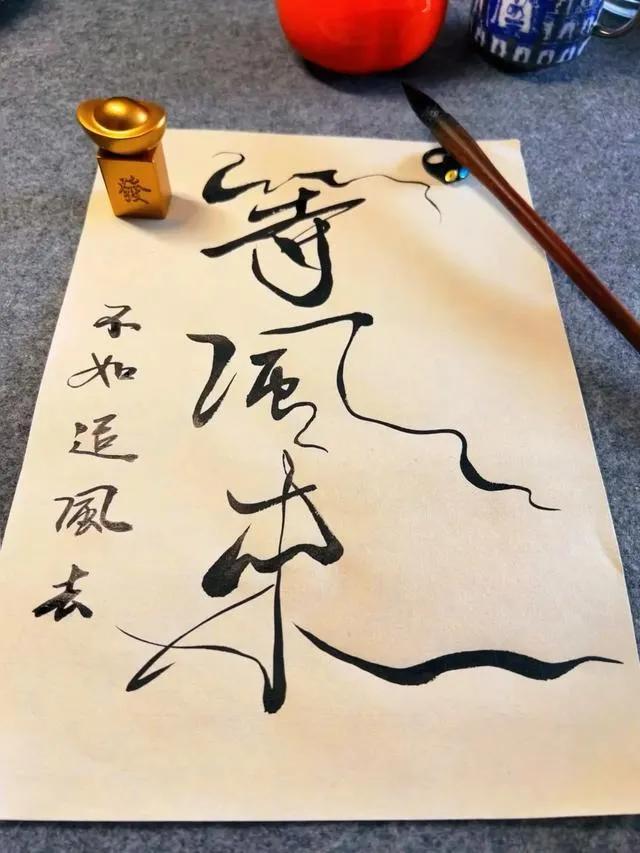 等風来
不如追風去
發